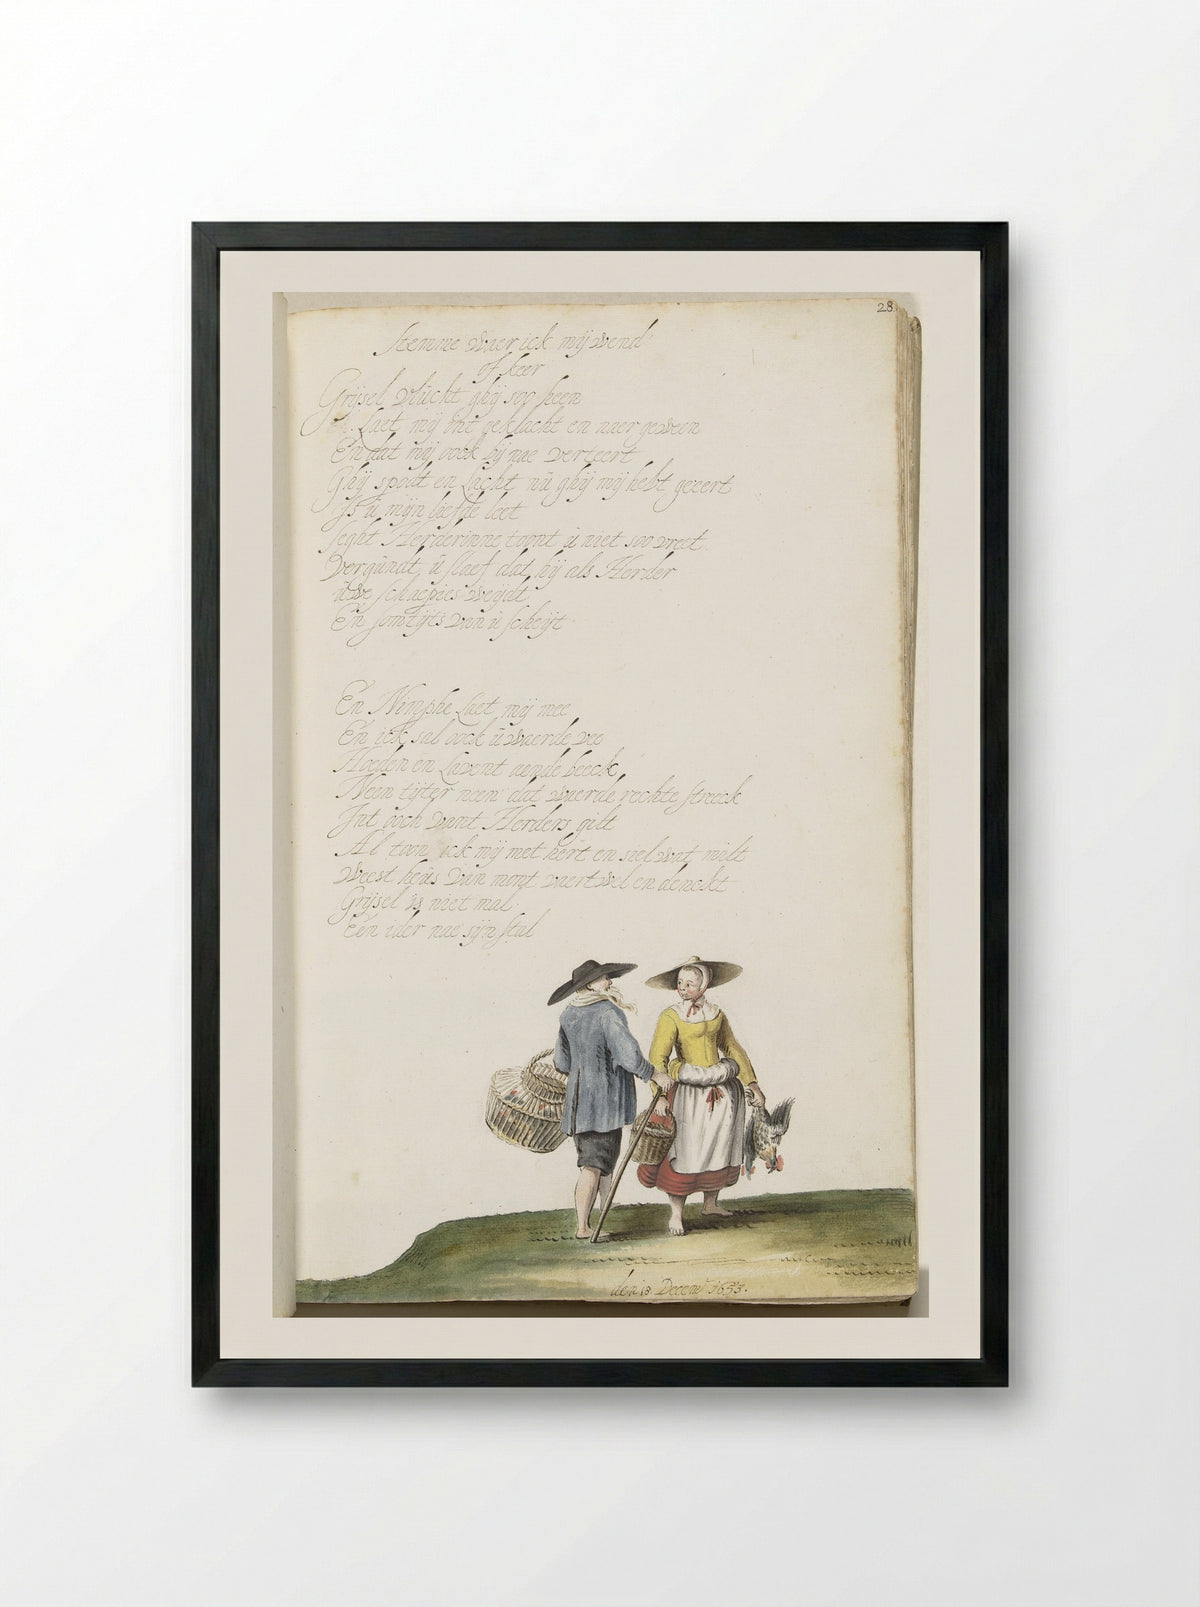 28
Stemme waer ick mij wend
of keer
Grijsel vlucht ghij soo heen
Laet mij int geklacht en naer geween
En dat mij oock bij nae verteert
Ghij spodt en Lacht nu ghij mij hebt gezert
Js u mijn liefde leet
seght Herderinne toont u niet soo vreet
Vergundt u slaef dat hij als Herder
uwe schaepies weijdt
En somtijts van u scheijt
En Nimphe Laet mij mee
En ick sal oock u waerde vee
Hoeden en Lavent aende beeck
Neen tijter neen dat waerde rechte streeck
Jnt ooch want Herders gilt
Al toon ick mij met hert en siel wat milt
Weest heus van mont vaert wel en denckt
Grijsel is niet mal
Een ider nae sijn stal
den 18 Decem 1653.